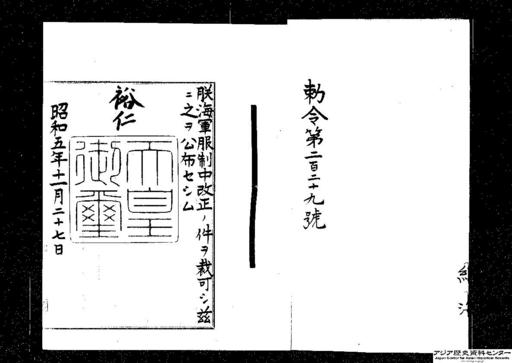 勅令第二百二十九號
朕海軍服制中改正ノ件ヲ裁可シ茲
ニ之ヲ公布セシム
裕仁
天皇
御璽
昭和五年十一月二十七日
アジア歴史資料センター
Japan Center for Asian Historical Records